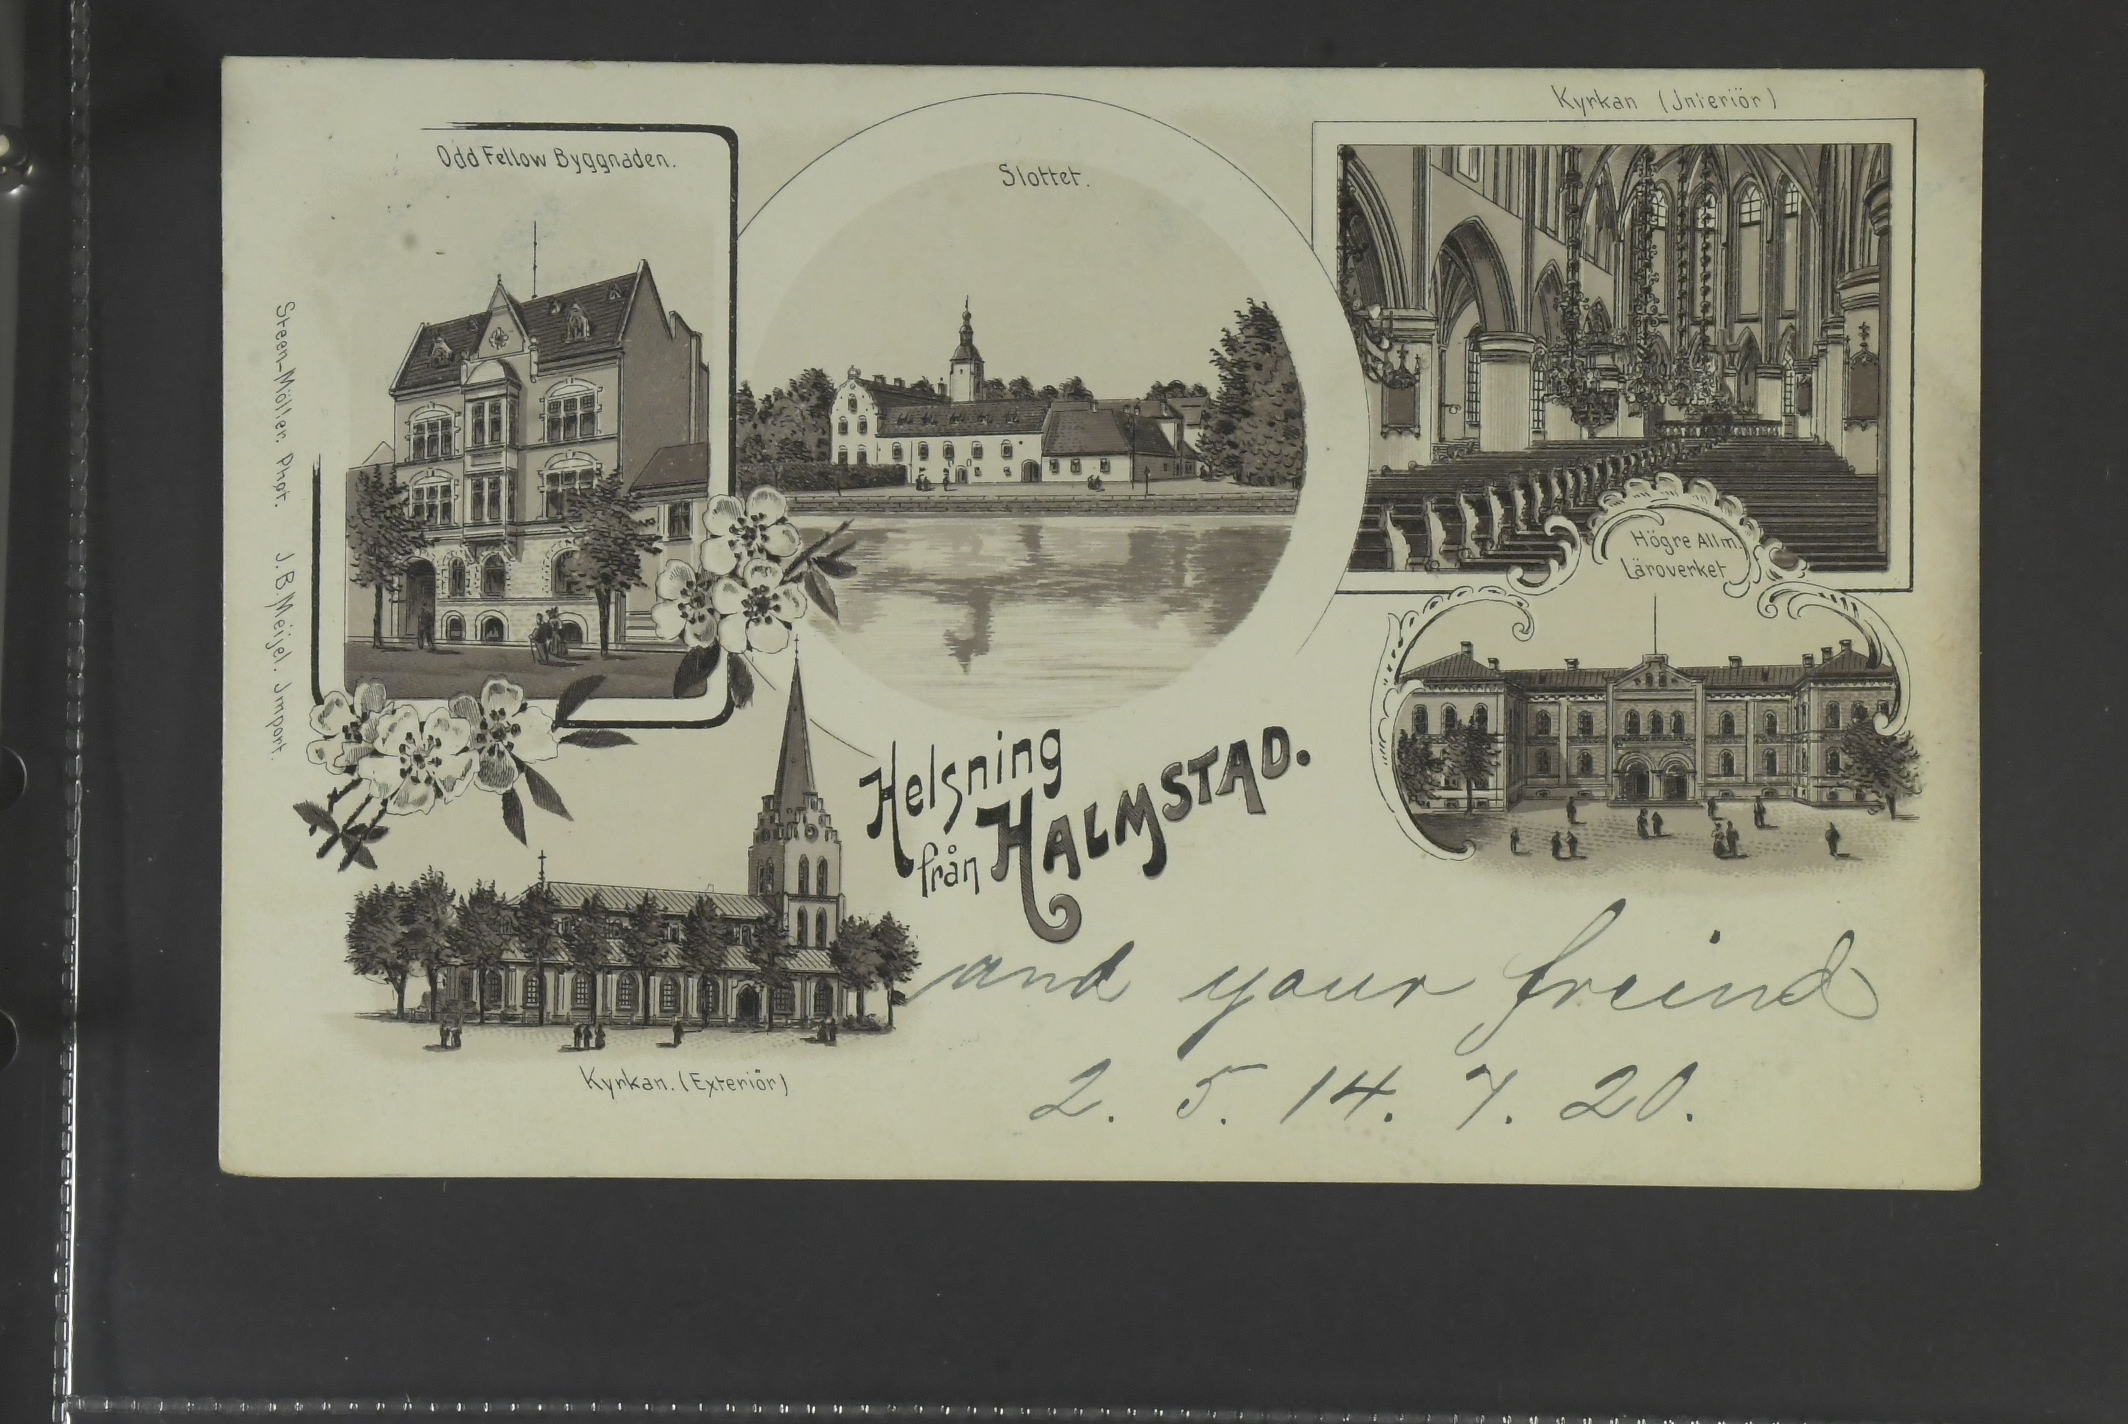 Odd Fellow Byggnaden.
Slottet.
Kyrkan (Interiör)
Högre Allm.
Läroverket
Steen-Möller. Phot. J. B. Meijel. Import.
Helsning
från HALMSTAD.
Kyrkan. (Exteriör)
and your freind
2. 5. 14. 7. 20.